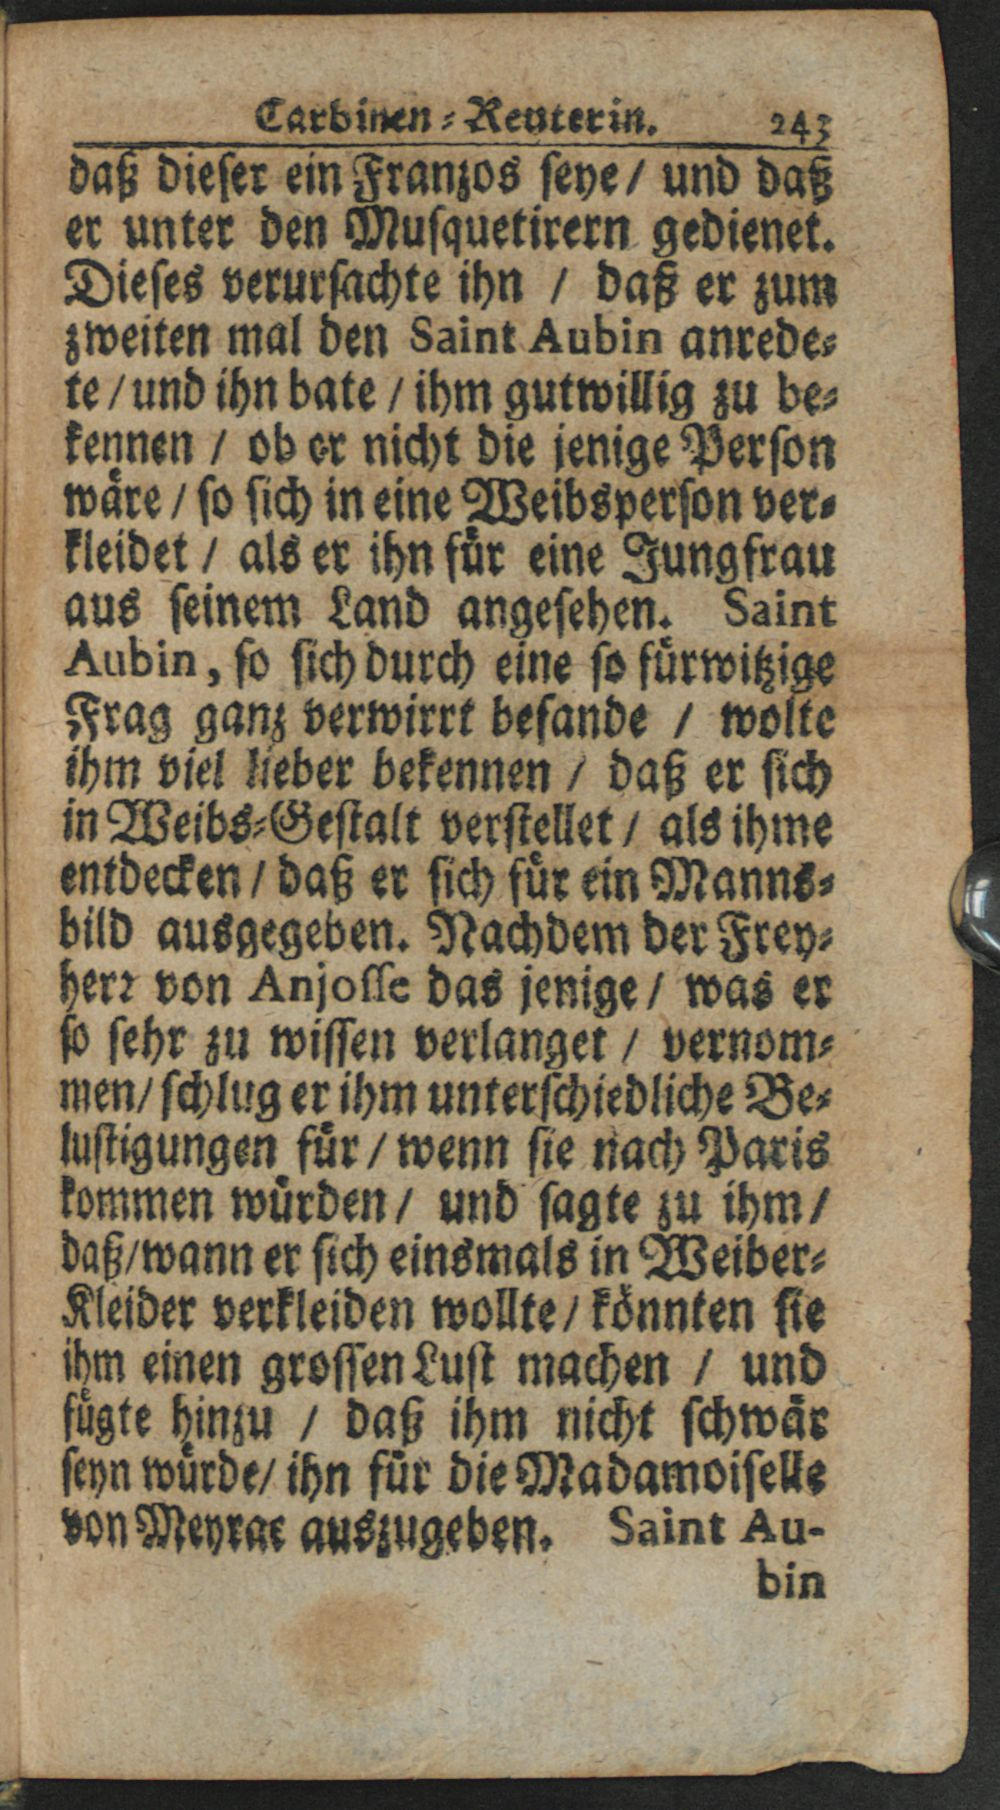 Carbinen-Reuterin. 243
daß dieser ein Franzos seye / und daß
er unter den Musquetirern gedienet.
Dieses verursachte ihn / daß er zum
zweiten mal den Saint Aubin anrede-
te / und ihn bate / ihm gutwillig zu be-
kennen / ob er nicht die jenige Person
wåre / so sich in eine Weibsperson ver-
kleidet / als er ihn fůr eine Jungfrau
aus seinem Land angesehen. Saint
Aubin, so sich durch eine so fůrwitzige
Frag ganz verwirrt befande / wolte
ihm viel lieber bekennen / daß er sich
in Weibs-Gestalt verstellet / als ihme
entdecken / daß er sich fůr ein Manns-
bild ausgegeben. Nachdem der Frey-
herr von Anjosse das jenige / was er
so sehr zu wissen verlanget / vernom-
men / schlug er ihm unterschiedliche Be-
lustigungen fůr / wenn sie nach Paris
kommen wůrden / und sagte zu ihm /
daß / wann er sich einsmals in Weiber-
Kleider verkleiden wollte / kŏnnten sie
ihm einen grossen Lust machen / und
fůgte hinzu / daß ihm nicht schwår
seyn wůrde / ihn fůr die Madamoiselle
von Meyrac auszugeben. Saint Au-
bin